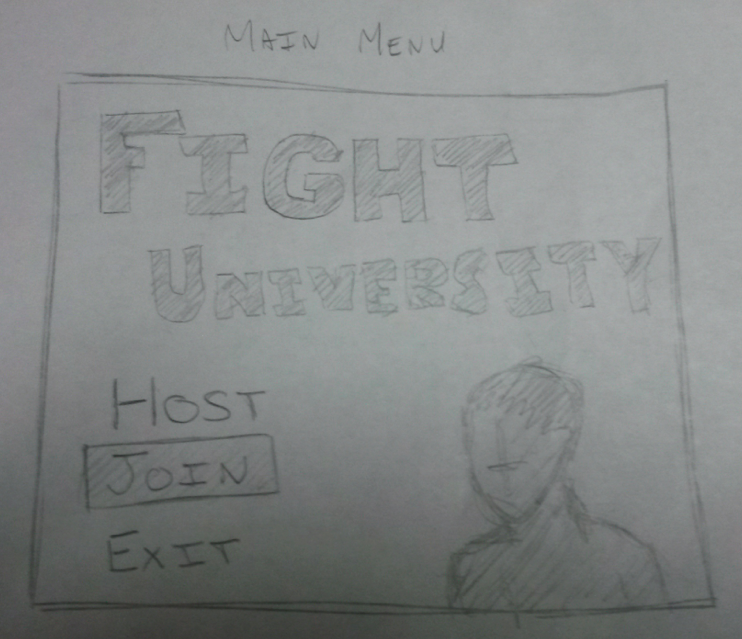 MAIN MENU
FIGHT
UNIVERSITY
HOST
JOIN
EXIT